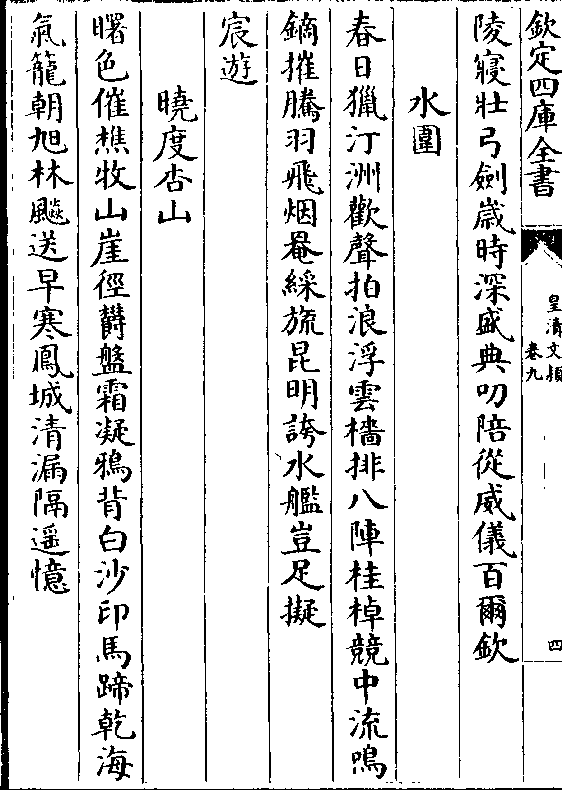 欽定四庫全書
皇清文穎
卷九
四
陵寢壯弓劍歲時深盛典叨陪從威儀百爾欽
水圍
春日獵汀洲歡聲拍浪浮雲檣排八陣桂棹競中流鳴
鏑摧騰羽飛烟罨綵旒昆明誇水艦豈足擬
宸遊
曉度杏山
曙色催樵牧山崖徑欝盤霜凝鴉背白沙印馬蹄乾海
氣籠朝旭林飈送早寒鳳城清漏隔遥憶